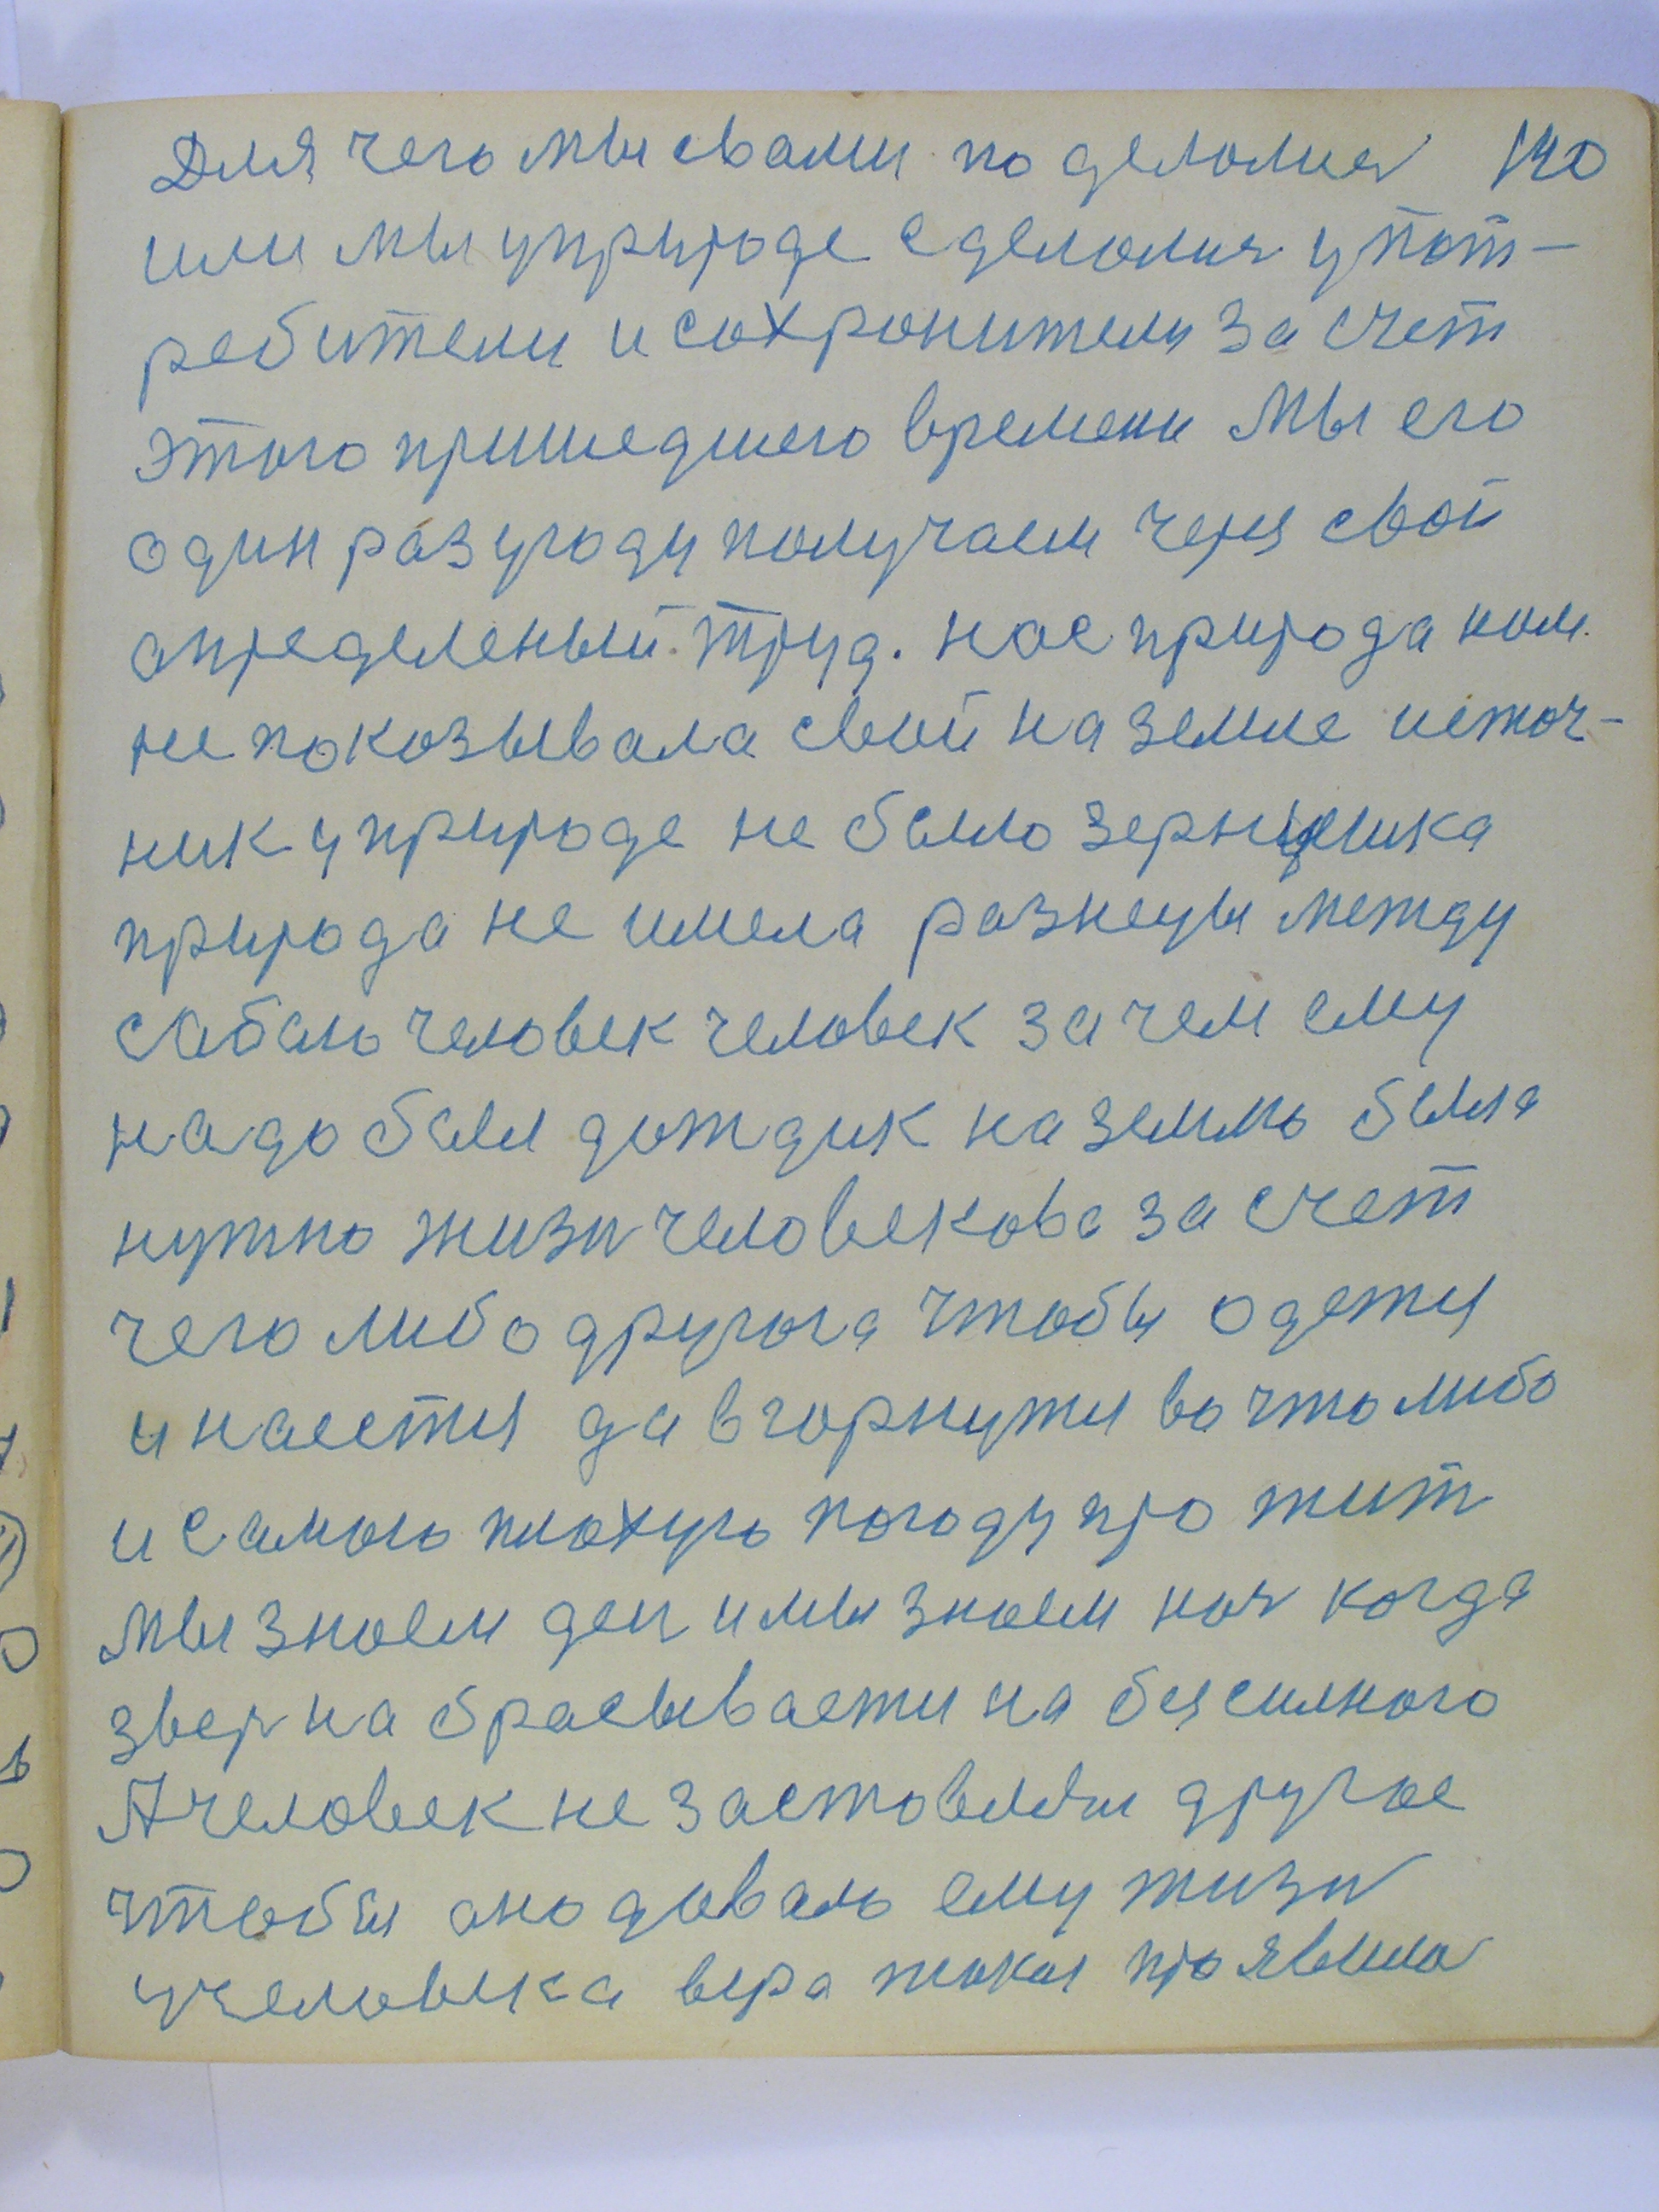 Для чего мы свами поделолися 140
или мы уприроде сделолися упот-
ребители и сохронители за счет
этого пришедшего времени Мы его
один раз угоду получаем через свой
определеный труд. нас природа ном
не покозывала свой на земле источ-
ник уприроде не было зерна
природа не имела разнецы между
сабою человек человек зачем ему
надо был дождик на землю была
нужно жизн человекова за счет
чего либо другога чтобы одется
и наестся да вгорнутся во что либо
и самою плохую погоду прожит
Мы знаем ден и мы знаем ноч когда
звер набрасывается на безсилного
А человек не заставлял другое
чтобы оно довало ему жизн
учеловека вера такая проявилас